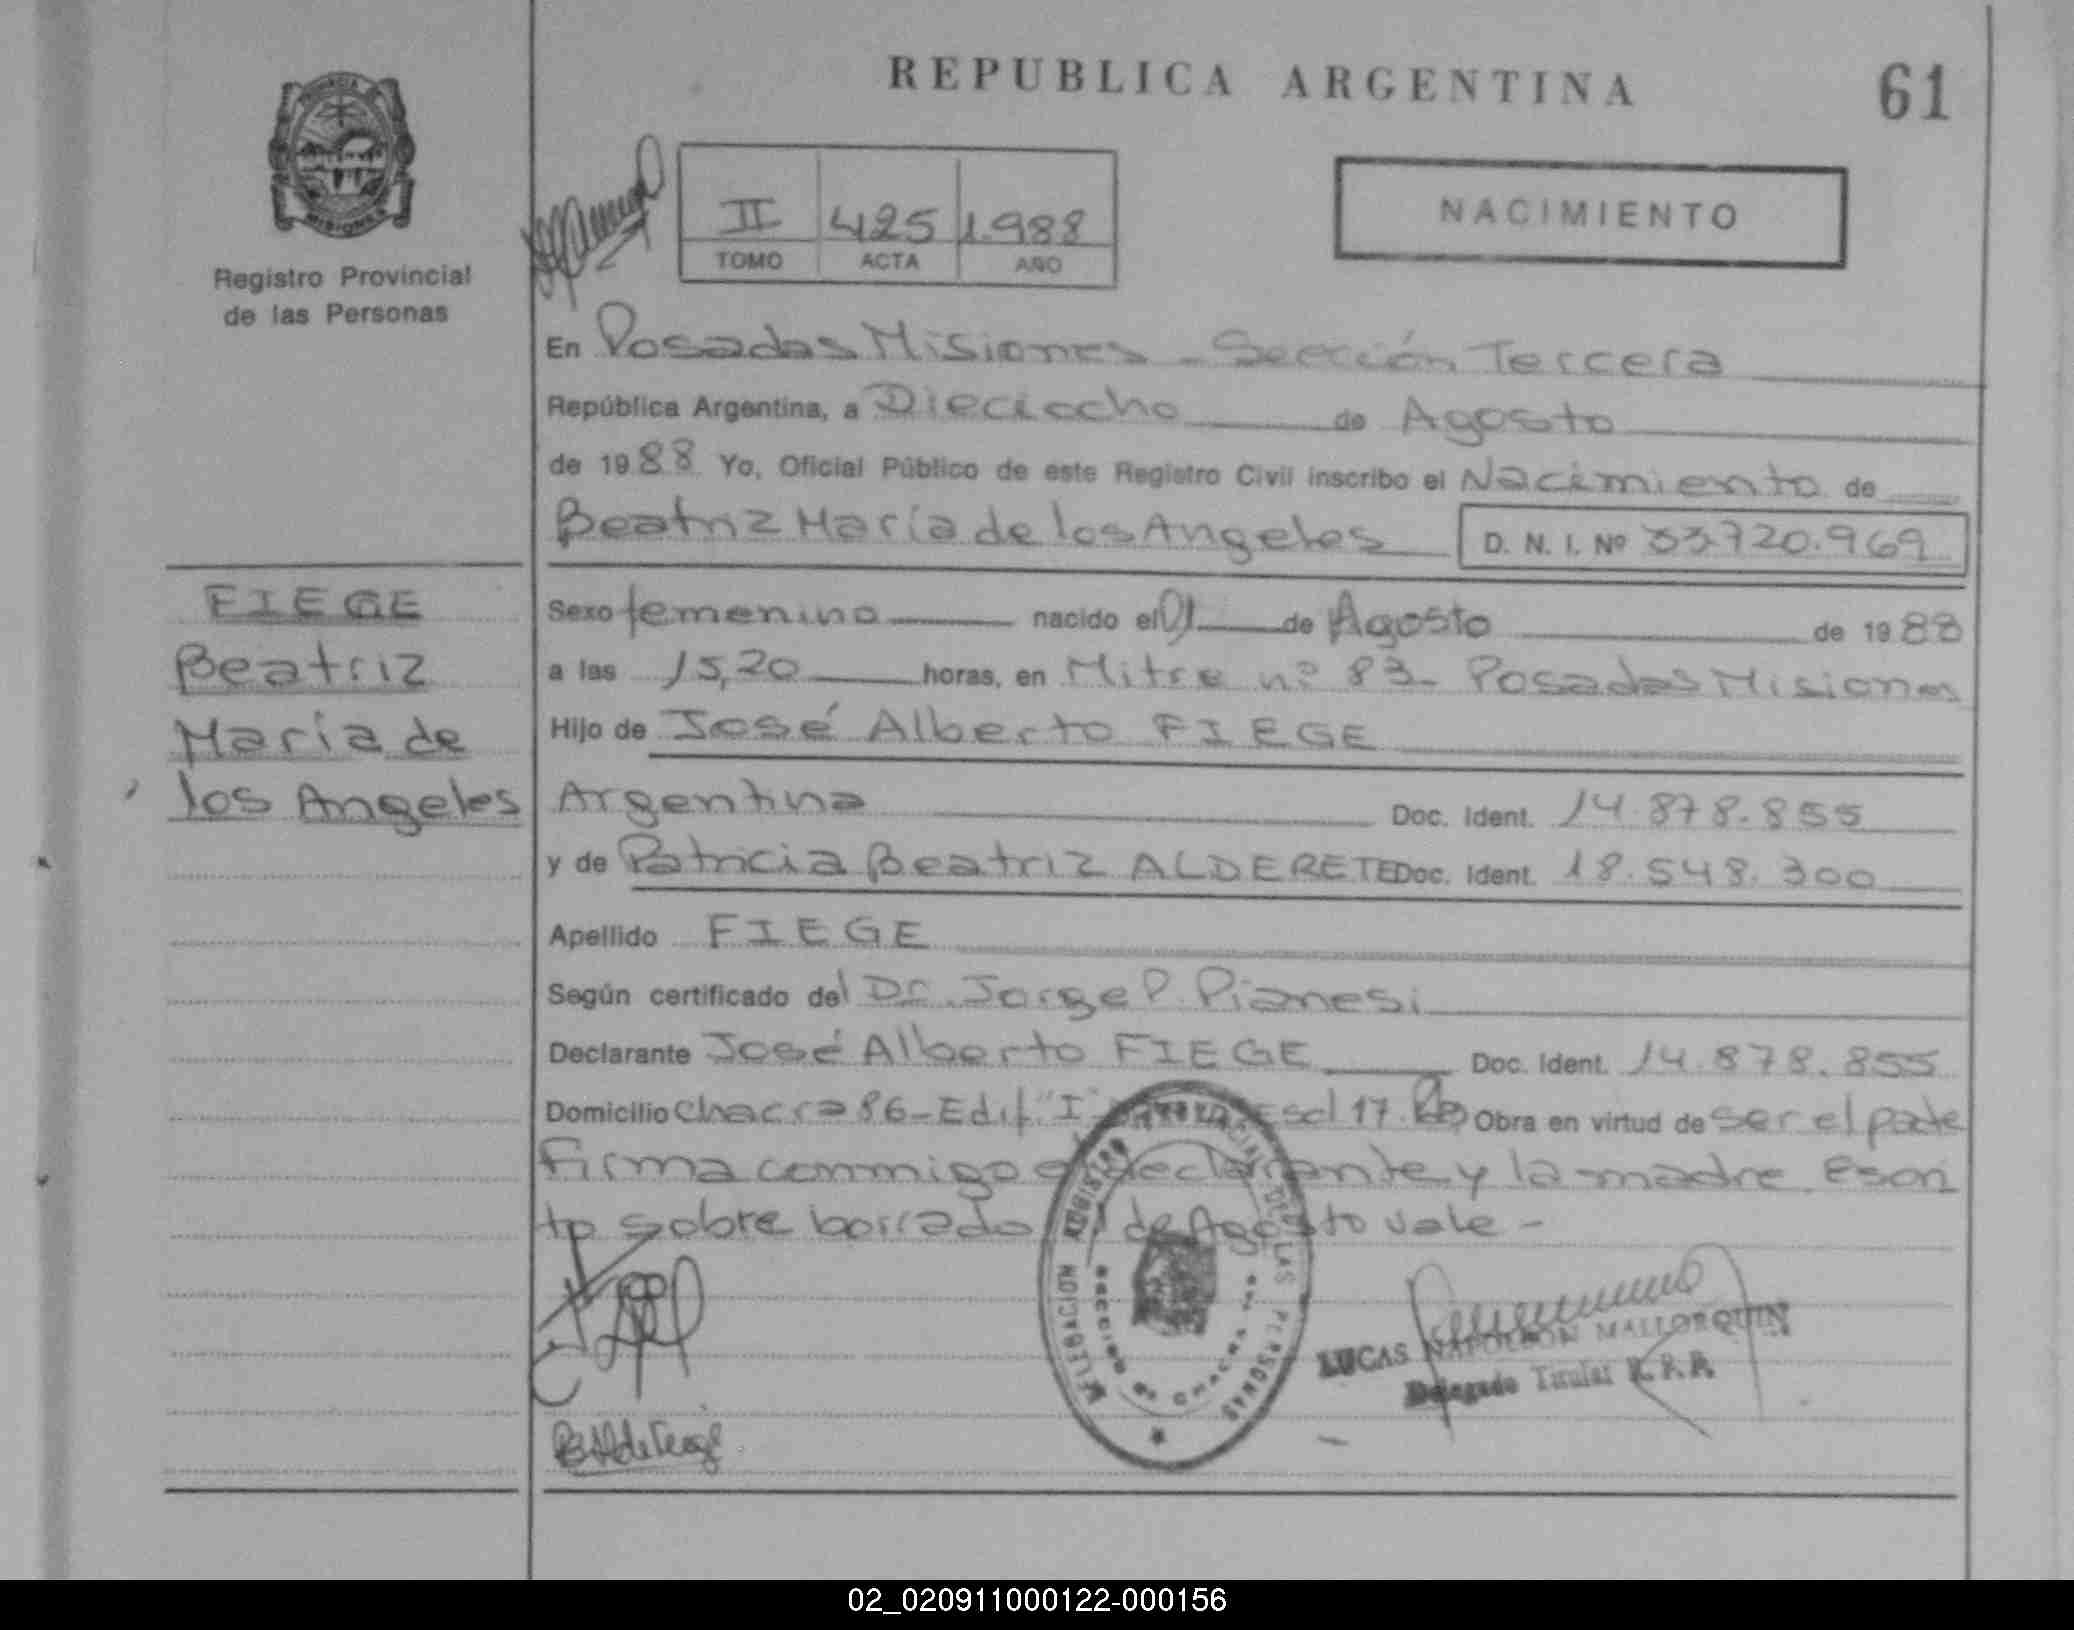 REPUBLICA ARGENTINA
61
Registro Provincial
de las Personas
II 425 1.988
TOMO ACTA AÑO
NACIMIENTO
En Posadas Misiones - Sección Tercera
República Argentina, a Dieciocho de Agosto
de 1988 Yo, Oficial Público de este Registro Civil inscribo el Nacimiento de
Beatriz María de los Angeles D. N. I. Nº 33.720.969
FIEGE
Beatriz
María de
los Angeles
Sexo femenino nacido el 01 de Agosto de 1988
a las 15,20 horas, en Mitre nº 83 - Posadas Misiones
Hijo de José Alberto FIEGE
Argentina Doc. Ident. 14.878.855
y de Patricia Beatriz ALDERETE Doc. Ident. 18.548.300
Apellido FIEGE
Según certificado del Dr. Jorge P. Pianesi
Declarante José Alberto FIEGE Doc. Ident. 14.878.855
Domicilio chacra 86 - Edif. "I" Esc 17 Obra en virtud de ser el padre
firma conmigo el declarante y la madre Escri
to sobre borrado de Agosto vale -
DELEGACION REGISTRO PROVINCIAL DE LAS PERSONAS
LUCAS NAPOLEON MALLORQUIN
Delegado Titular R. P. P.
02_020911000122-000156